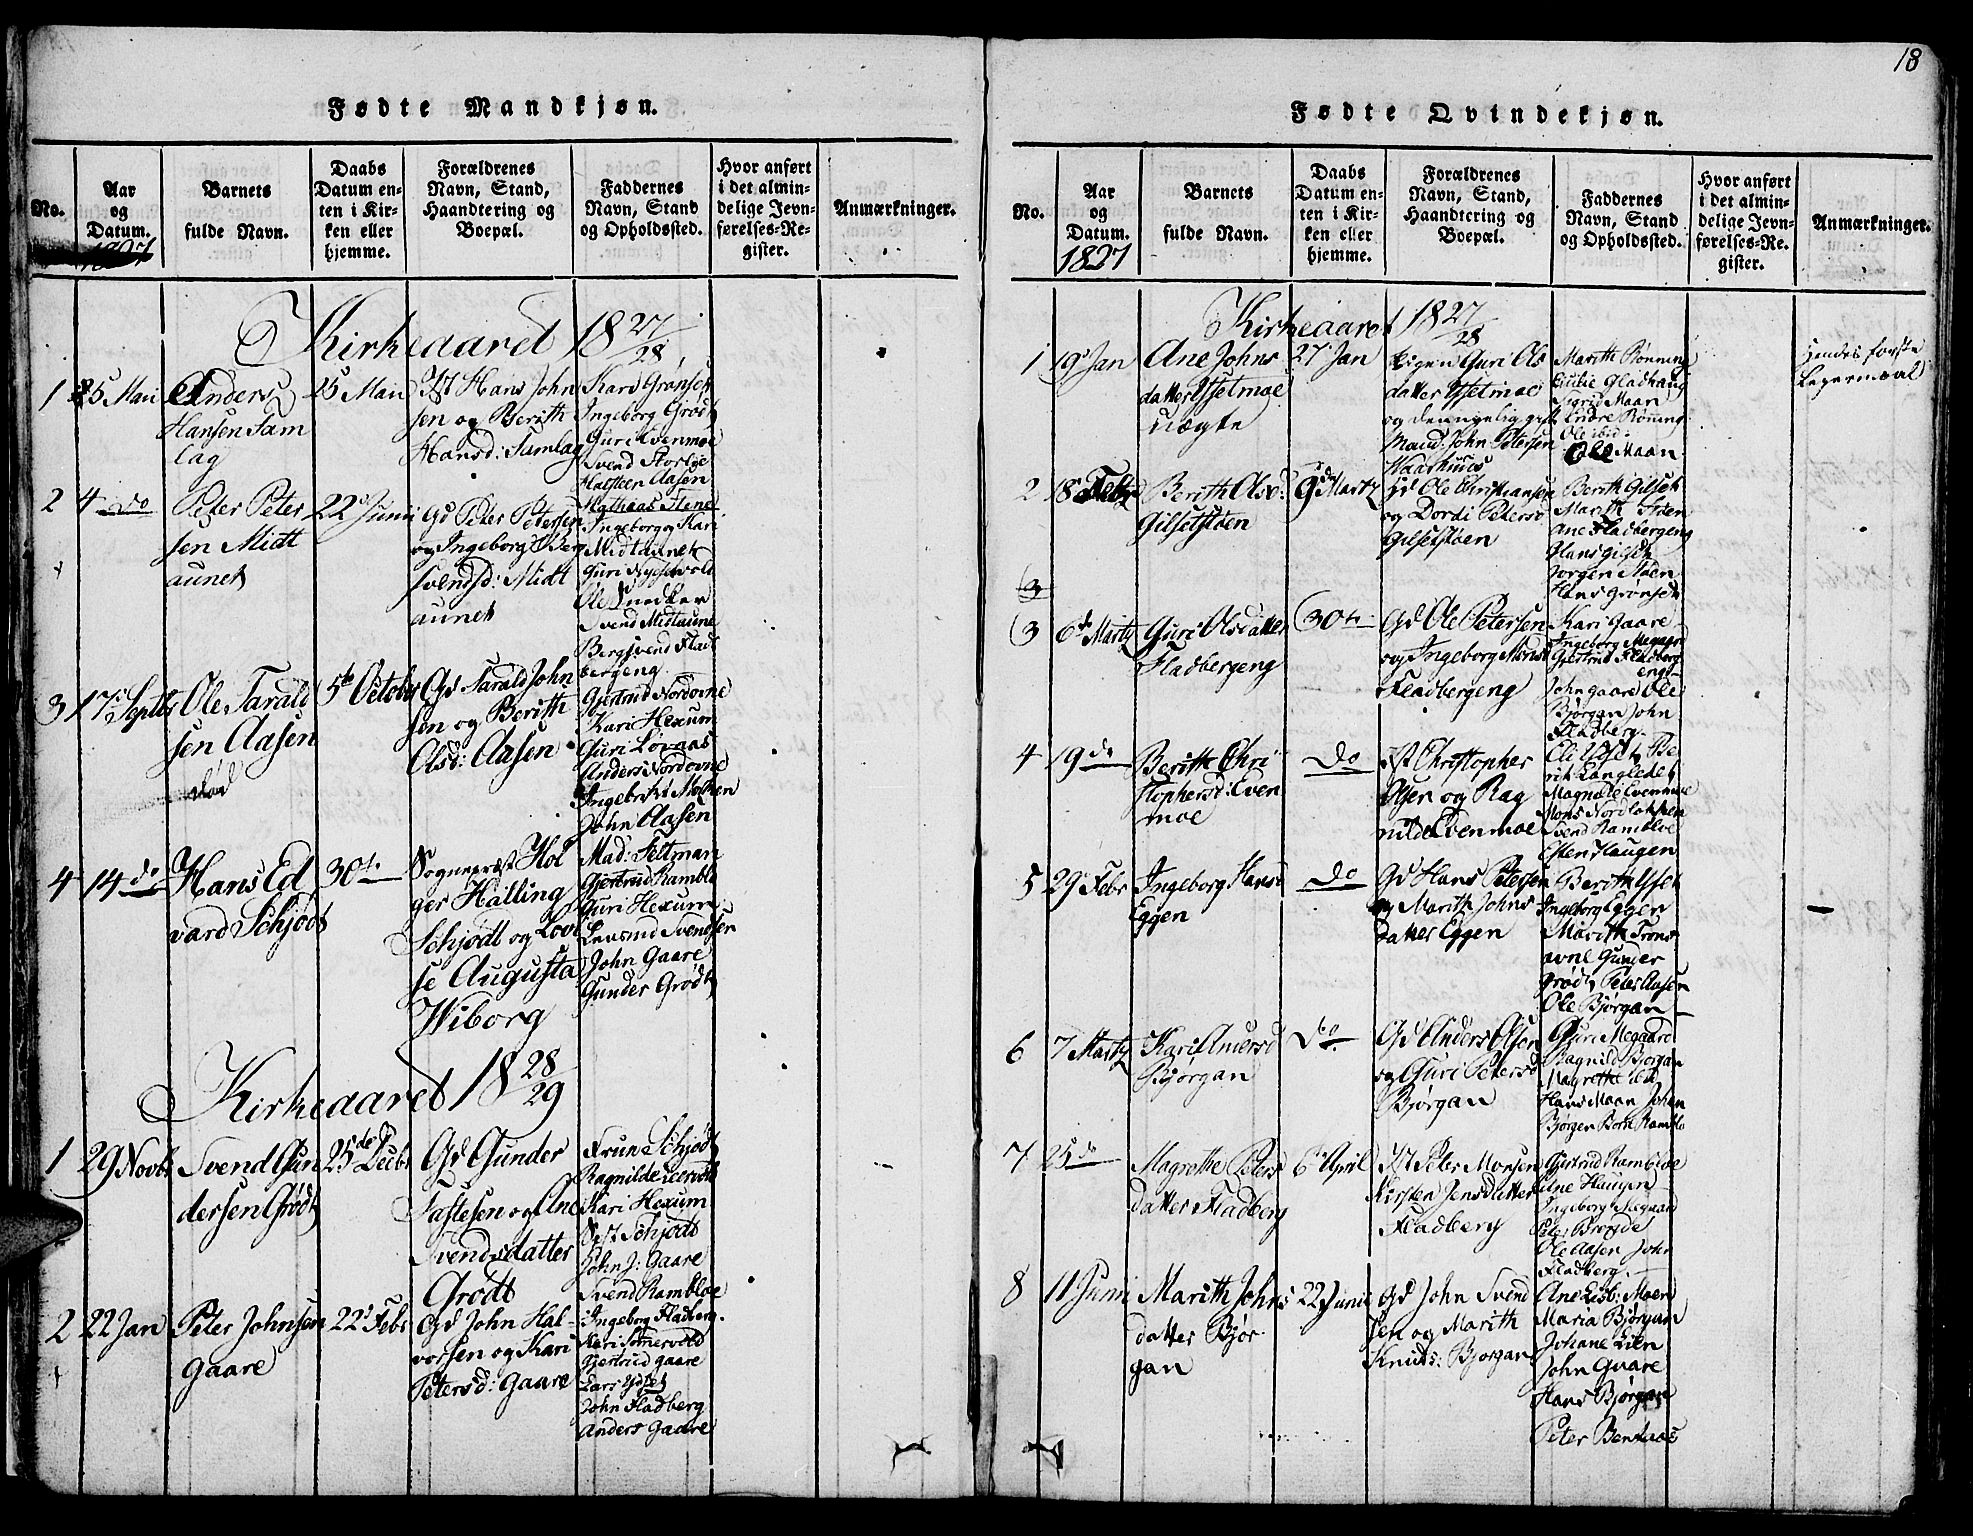 Fødte Mandkjøn.
No.
Aar
og
Datum.
1827
Barnets
fulde Navn.
Daabs
Datum en-
ten i Kir-
ken eller
hjemme.
Forældrenes
Navn, Stand,
Haandtering og
Boepæl.
Faddernes
Navn, Stand
og Opholdssted.
Hvor anført
i det almin-
delige Jevn-
førelses-Re-
gister.
Anmærkninger.
Kirkeaaret 18 27/28
1
25 Mai
Anders
Hansen Sam
lag
25 Mai
Hans John
sen og Berith
Hansd: Samlag
Kari Grønset
Ingeborg Grødt
Guri Evenmoe
Svend Storlie
Halsteen Aasen
2
4 do
Peter Peter
sen Midt
aunet
22 Junii
Gd Peter Petersen
og Ingeborg Berg
svendsd: Midt
aunet
Mathias Stene
Ingeborg og Kari
Midtaunet
Guri Nysetvold
Ole Snedker
Svend Midtaune
Bergsvend Flad
bergeng
3
17 Septbr
Ole Tarald
sen Aasen
død
5te October
Gd Tarald John
sen og Berith
Olsd: Aasen
Gjertrud Nordovne
Kari Hexum
Guri Løvnas
Anders Nordovne
Ingebrikt Moen
John Aasen
4
14 do
Hans Ed
vard Schjødt
30t
Sognepræst Hol
ger Halling
Schjødt og Lovi
se Augusta
Wiborg
Mad: Feltman
Gjertrud Rambloe
Guri Hexum
Svendsen
John Gaare
Gunder Grødt
Kirkeaaret 18 28/29
1
29 Novbr
Svend Gun
dersen Grødt
25de Decbr
Gd Gunder
Tastesen og Ane
Svendsdatter
Grødt
Frue Schjødt
Ragnilde
Kari Hexum
Schjødt
John J: Gaare
Svend Rambloe
2
22 Jan
Peter Johnsen
Gaare
22 Febr
Gd John Hal-
vorsen og Kari
Petersd: Gaare
Ingeborg Fladberg
Kari Somervold
Gjertrud Gaare
Lars Ydset
John Fladberg
Anders Gaare
18
Fødte Qvindekjøn.
No.
Aar
og
Datum.
1827
Barnets
fulde Navn.
Daabs
Datum en-
ten i Kir-
ken eller
hjemme.
Forældrenes
Navn, Stand,
Haandtering og
Boepæl.
Faddernes
Navn, Stand
og Opholdssted.
Hvor anført
i det almin-
delige Jevn-
førelses-Re-
gister.
Anmærkninger.
Kirkeaaret 18 27/28
1
19 Jan
Ane Johns
datter Ysetmoe
uægte
27 Jan
Pigen Guri Ols
datter Ysetmoe
og den nyelig gift
Mand: John Petersen
Waarhuus
Marith Rønning
Cicilie Gladhaug
Sigrid Maan
Endre Rønning
Ole ibid:
Ole Maan
Hendes første
Leiermaal
2
18 Febr
Berith Olsd:
Gilsetstøen
9de Martz
Gd Ole Christiansen
og Dordi Petersd
Gilsetstøen
Berith Gilset
Marith Støen
Ane Fladbergeng
Hans Gilset
Jørgen Støen
Hans Grønset
3
3
6te Martz
Guri Olsdatter
Fladbergeng
30t
Gd Ole Petersen
og Ingeborg Monsd
Fladbergeng
Kari Gaare
Ingeborg Megaar
Gjertrud Fladberg
eng
John Gaare Ole
Bjørgan John
Fladberg
4
19 do
Berith Chri
stophersd: Even
moe
do
Christopher
Olsen og Rag
nilde Evenmoe
Eli Ydset Be
rit Langledet
Magnæle Evenmoe
Mons Nordløkken
Svend Rambloe
Esten Haugen
5
29 Febr
Ingeborg Hansd
Eggen
do
Gd Hans Petersen
og Marith Johns
datter Eggen
Berith Yset
Ingeborg Eggen
Marith Trons
avne Gunder
Grødt, Peter Aasen
Ole Bjørgan
6
7 Martz
Kari Andersd
Bjørgan
do
Gd Anders Olsen
og Guri Petersd
Bjørgan
Guri Megaard
Ragnild Bjørgan
Magrethe ibd
Hans Maan Johan
Bjørgen Bort Rambl
7
25 do
Magrethe Peters
datter Fladberg
6 April
Peter Monsen
Kirsten Jensdatter
Fladberg
Gjertrud Rambloe
Ane Haugen
Ingeborg Megaard
Peter Brægde
Ole Aasen John
Fladberg
8
11 Junii
Marith Johns
datter Bjør
gan
22 Junii
Gd John Svend
sen og Marith
Knuds: Bjørgan
Ane Lisb: Moen
Maria Bjørgan
Johane Lien
John Gaare
Hans Bjørgan
Peter Benkaas